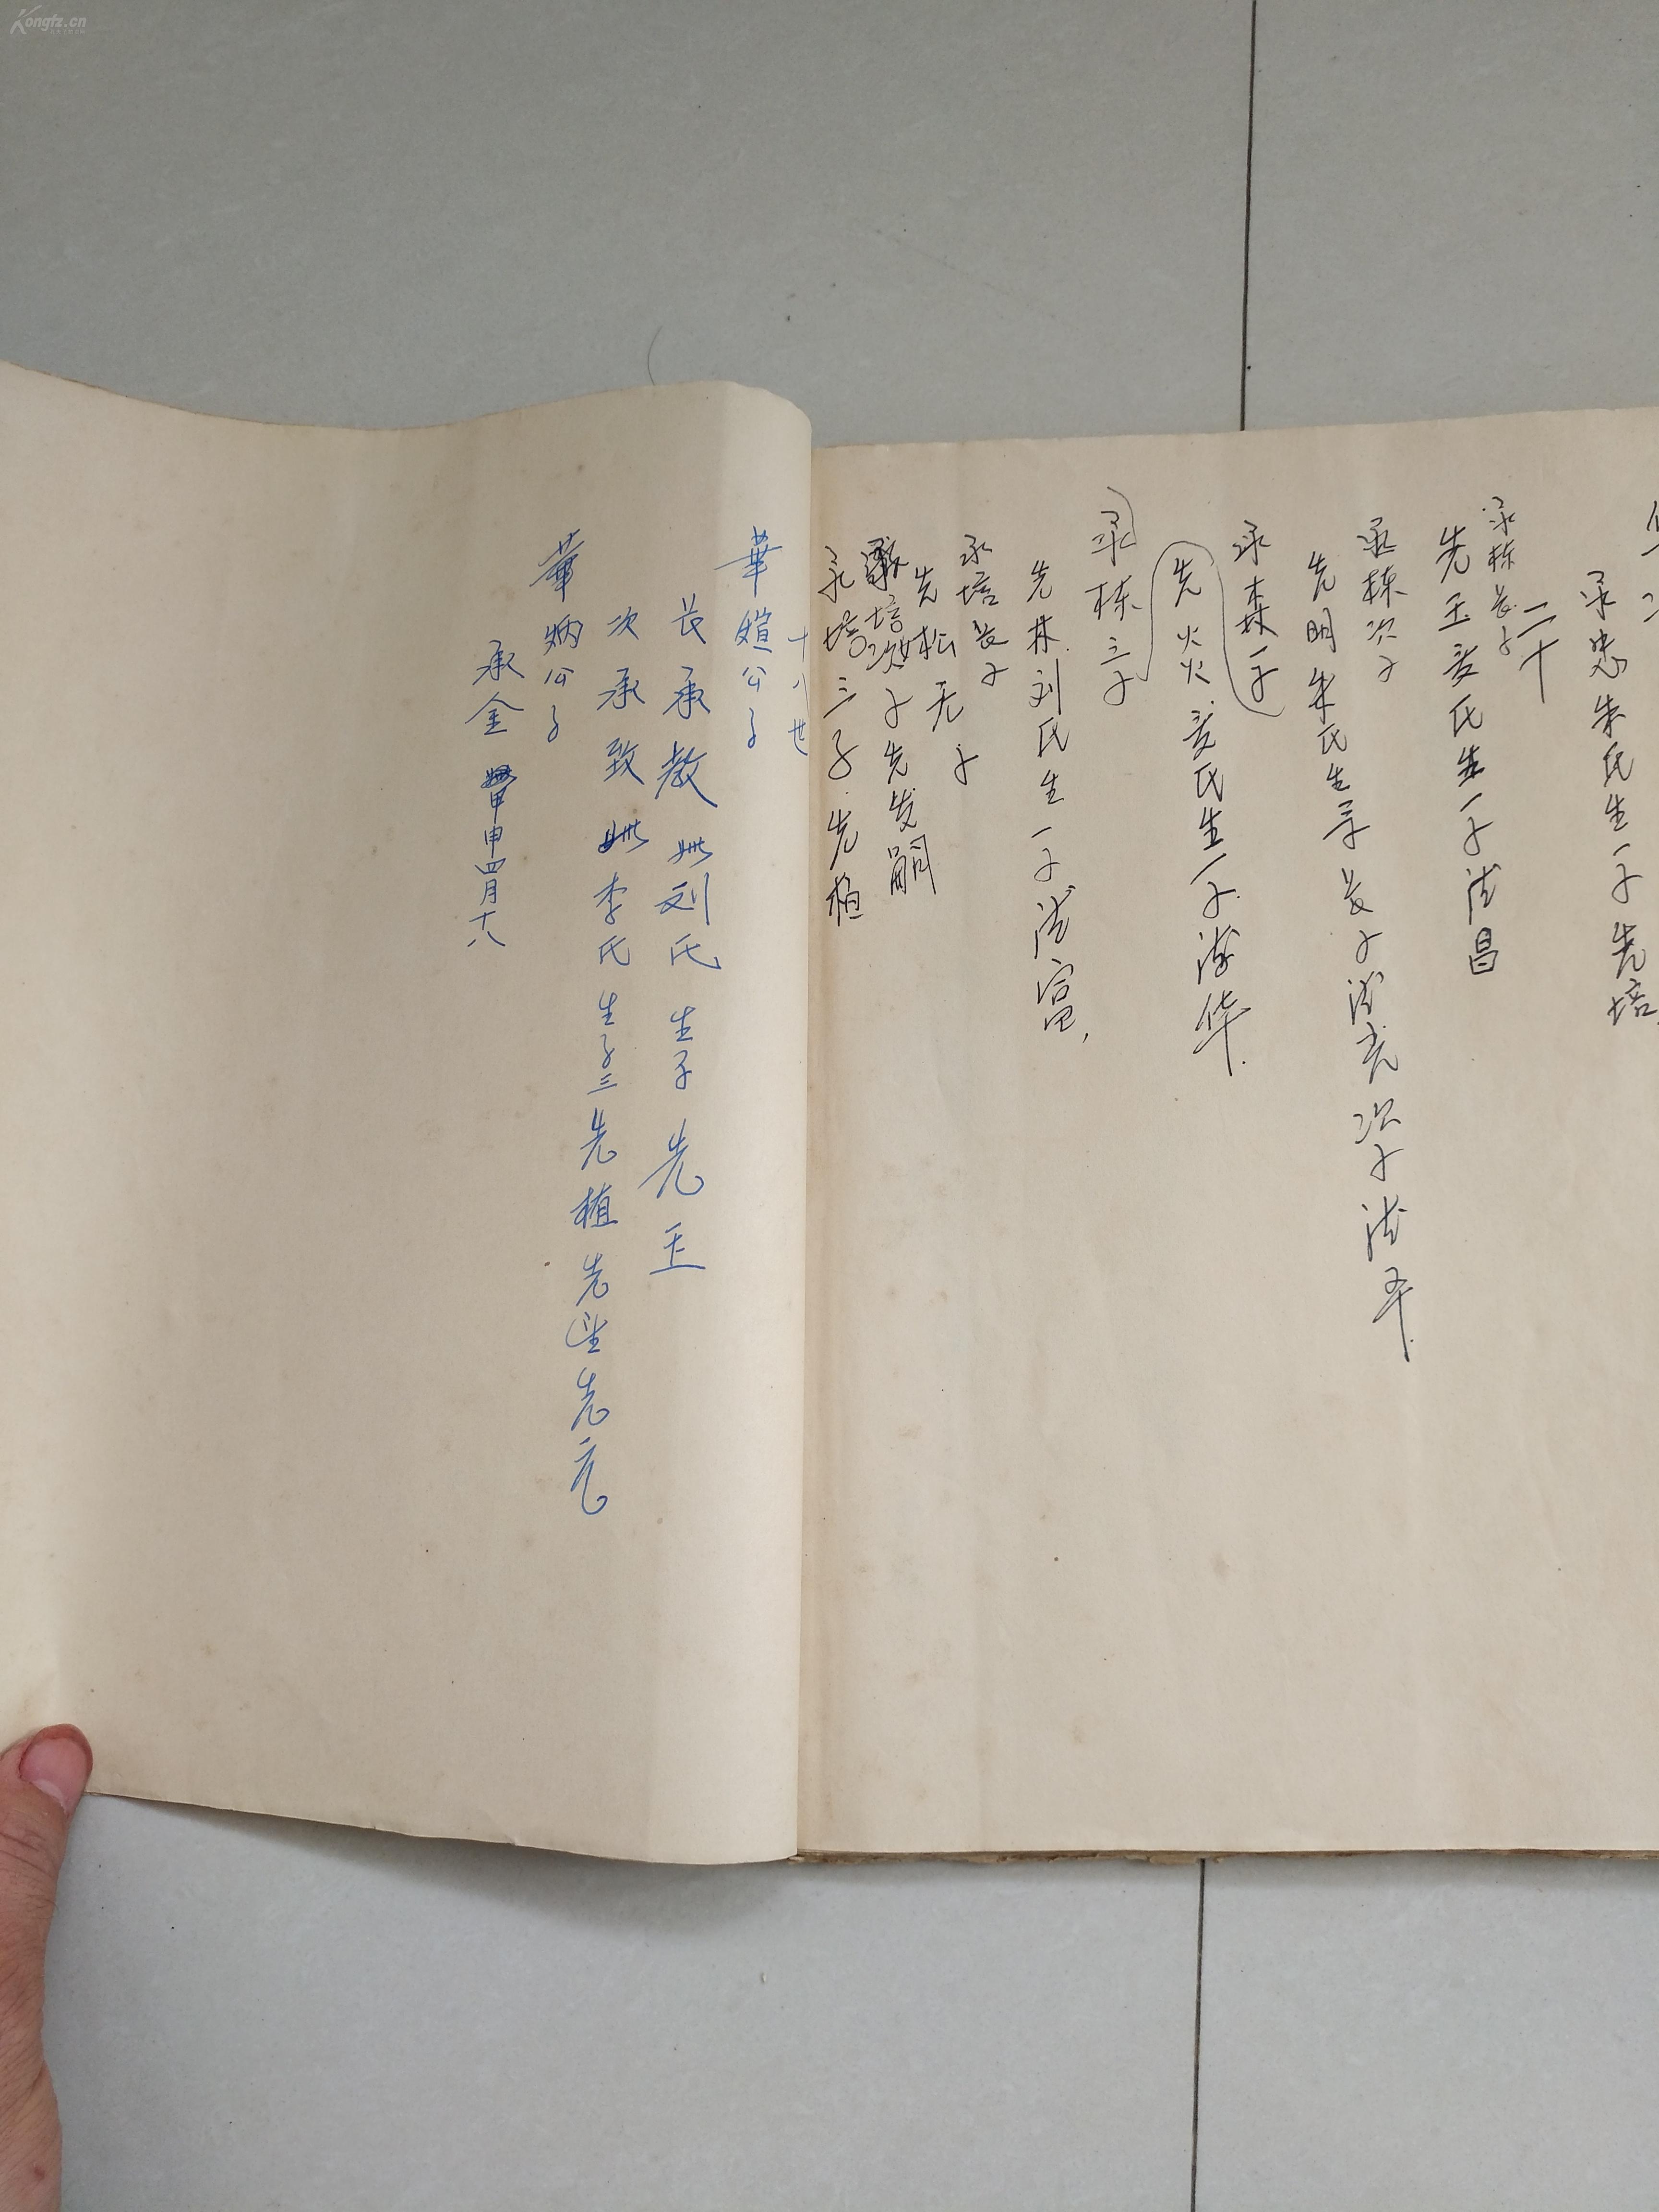 承忠朱氏生一子先培
二十
承栋长子
先玉袁氏生一子法昌
承栋次子
先明朱氏生二子长子法光次子法平
承森一子
先火火袁氏生一子法华
承栋三子
先林刘氏生一子法富
承培长子
先松无子
承培次子先发嗣
承培三子先植
十八世
華煊公子
长承教妣刘氏生子先玉
次承致妣李氏生子三先植先
華炳公子
承金甲申四月十八
Kongfz.cn